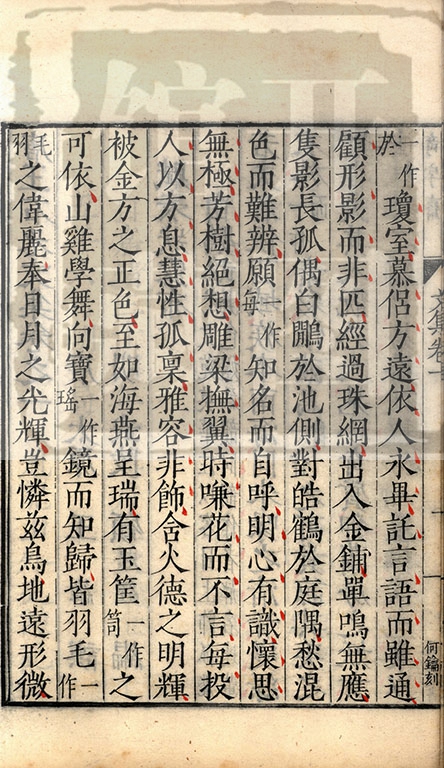 於一作瓊室慕侶方遠依人永畢託言語而雖通
顧形影而非匹經過珠網出入金鋪單鳴無應
隻影長孤偶白鷳於池側對皓鶴於庭隅愁混
色而難辨願一作每知名而自呼明心有識懷思
無極芳樹絕想雕梁撫翼時嗛花而不言每投
人以方息慧性孤稟雅容非飾含火德之明輝
被金方之正色至如海燕呈瑞有玉筐一作筒之
可依山雞學舞向寶一作瑤鏡而知歸皆羽毛一作
毛羽之偉麗奉日月之光輝豈憐茲鳥地遠形微
何鑰刻